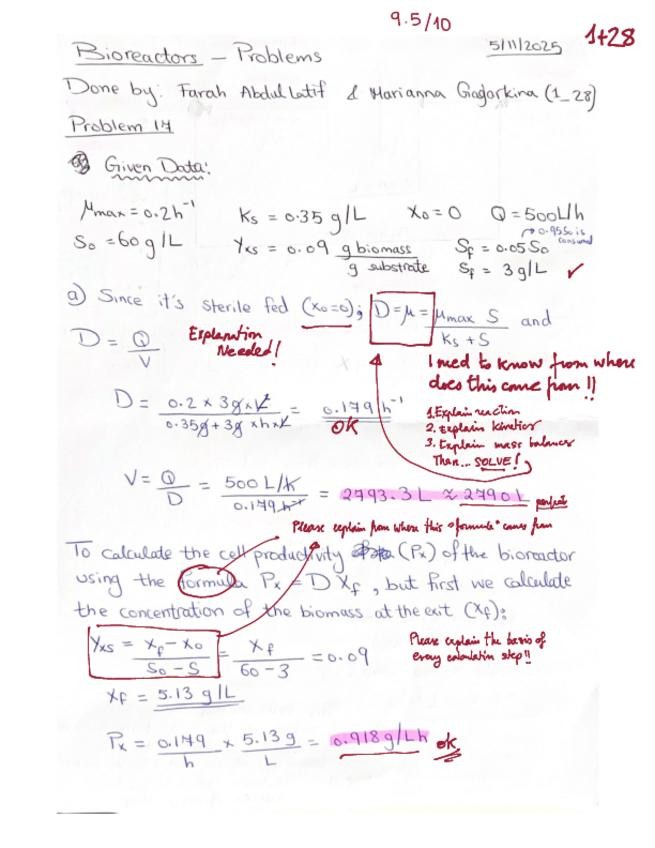 9.5/10
1+28
Bioreactors – Problems
5/11/2025
Done by: Farah Abdul Latif & Marianna Gagarkina (1_28)
Problem 14
Given Data:
μmax = 0.2 h⁻¹ Ks = 0.35 g/L X0 = 0 Q = 500L/h
→ 0.95So is consumed
So = 60 g/L Yxs = 0.09 g biomass / g substrate Sf = 0.05 So
Sf = 3 g/L ✓
a) Since it's sterile fed (X0=0); D = μ = μmax S / Ks + S and
D = Q / V
Explanation
Needed!
I need to know from where
does this come from !!
1. Explain reaction
2. Explain kinetics
3. Explain mass balances
Then... SOLVE!
D = 0.2 x 3g x L / 0.35g + 3g x h x L = 0.179 h⁻¹
OK
V = Q / D = 500 L/h / 0.179 h⁻¹ = 2793.3 L ≈ 2790 L perfect
Please explain from where this "formula" comes from
To calculate the cell productivity (Px) of the bioreactor
using the formula Px = D Xf, but first we calculate
the concentration of the biomass at the exit (Xf):
Yxs = Xf - X0 / So - S = Xf / 60 - 3 = 0.09
Please explain the basis of
every calculation step!!
Xf = 5.13 g/L
Px = 0.179 / h x 5.13 g / L = 0.918 g/Lh ok